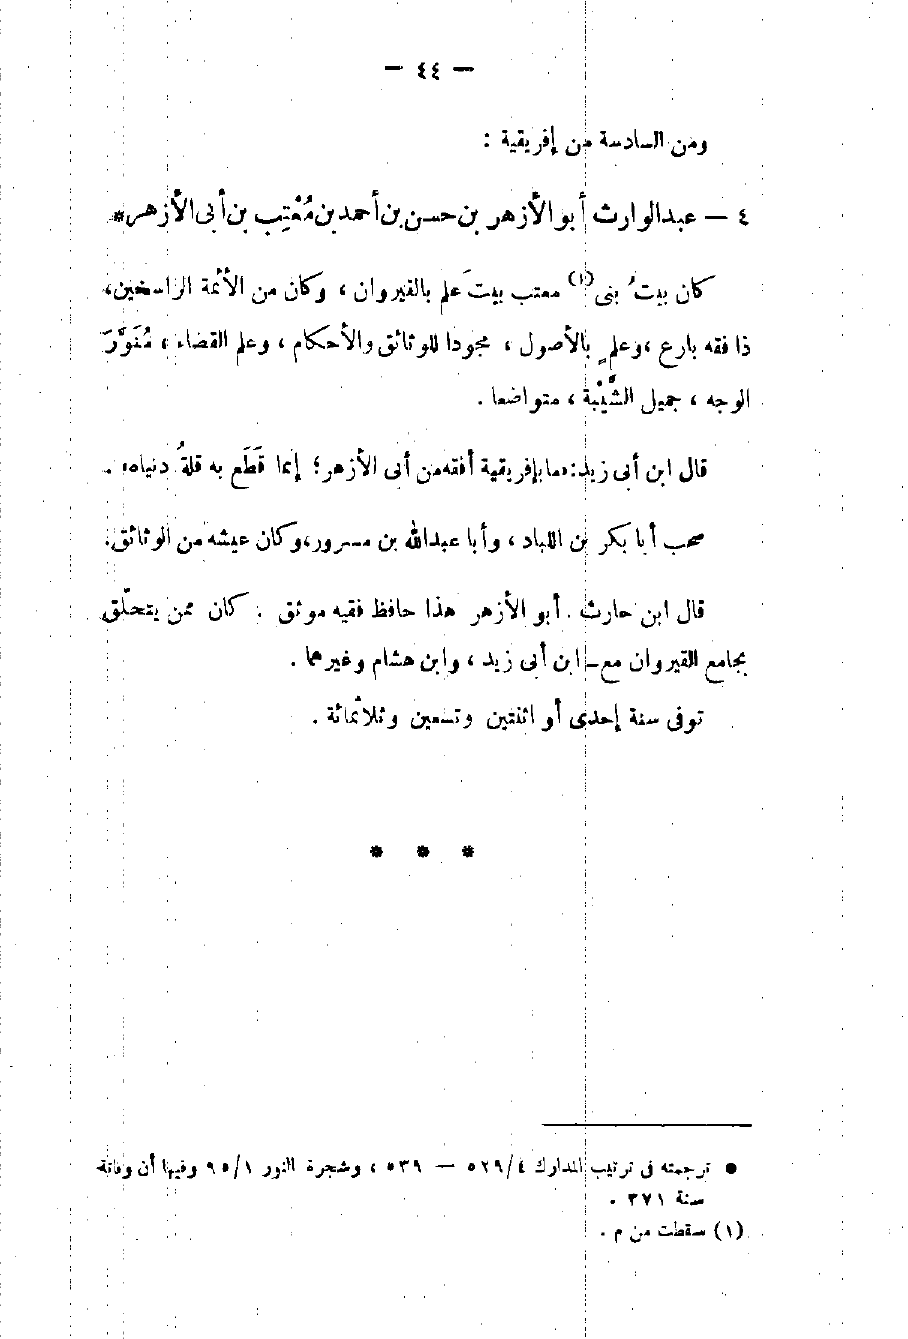 — ٤٤ —
ومن السادسة من إفريقية :
٤ — عبدالوارث أبو الأزهر بن حسن بن أحمد بن مُعْتِب بن أبى الأزهر*
كان بيتُ بنى(١) معتب بيتَ علم بالقيروان ، وكان من الأئمة الراسخين،
ذا فقه بارع ، وعلمٍ بالأصول ، مجودا للوثائق والأحكام ، وعلم القضاء ، مُنَوَّرَ
الوجه ، جميل الشَّيْبة ، متواضعا .
قال ابن أبى زيد: «ما بإفريقية أفقه من أبى الأزهر؛ إنما قَطَع به قلةُ دنياه» .
صحب أبا بكر بن اللباد ، وأبا عبدالله بن مسرور، وكان عيشه من الوثائق.
قال ابن حارث . أبو الأزهر هذا حافظ فقيه موثق . كان ممن يتحلّق
بجامع القيروان مع ابن أبى زيد ، وابن هشام وغيرهما .
توفى سنة إحدى أو اثنتين وتسعين وثلاثمائة .
* * *
● ترجمته فى ترتيب المدارك ٤/٥٢٩ — ٥٣٩ ، وشجرة النور ١/٩٥ وفيها أن وفاته
سنة ٣٧١ .
(١) سقطت من م .